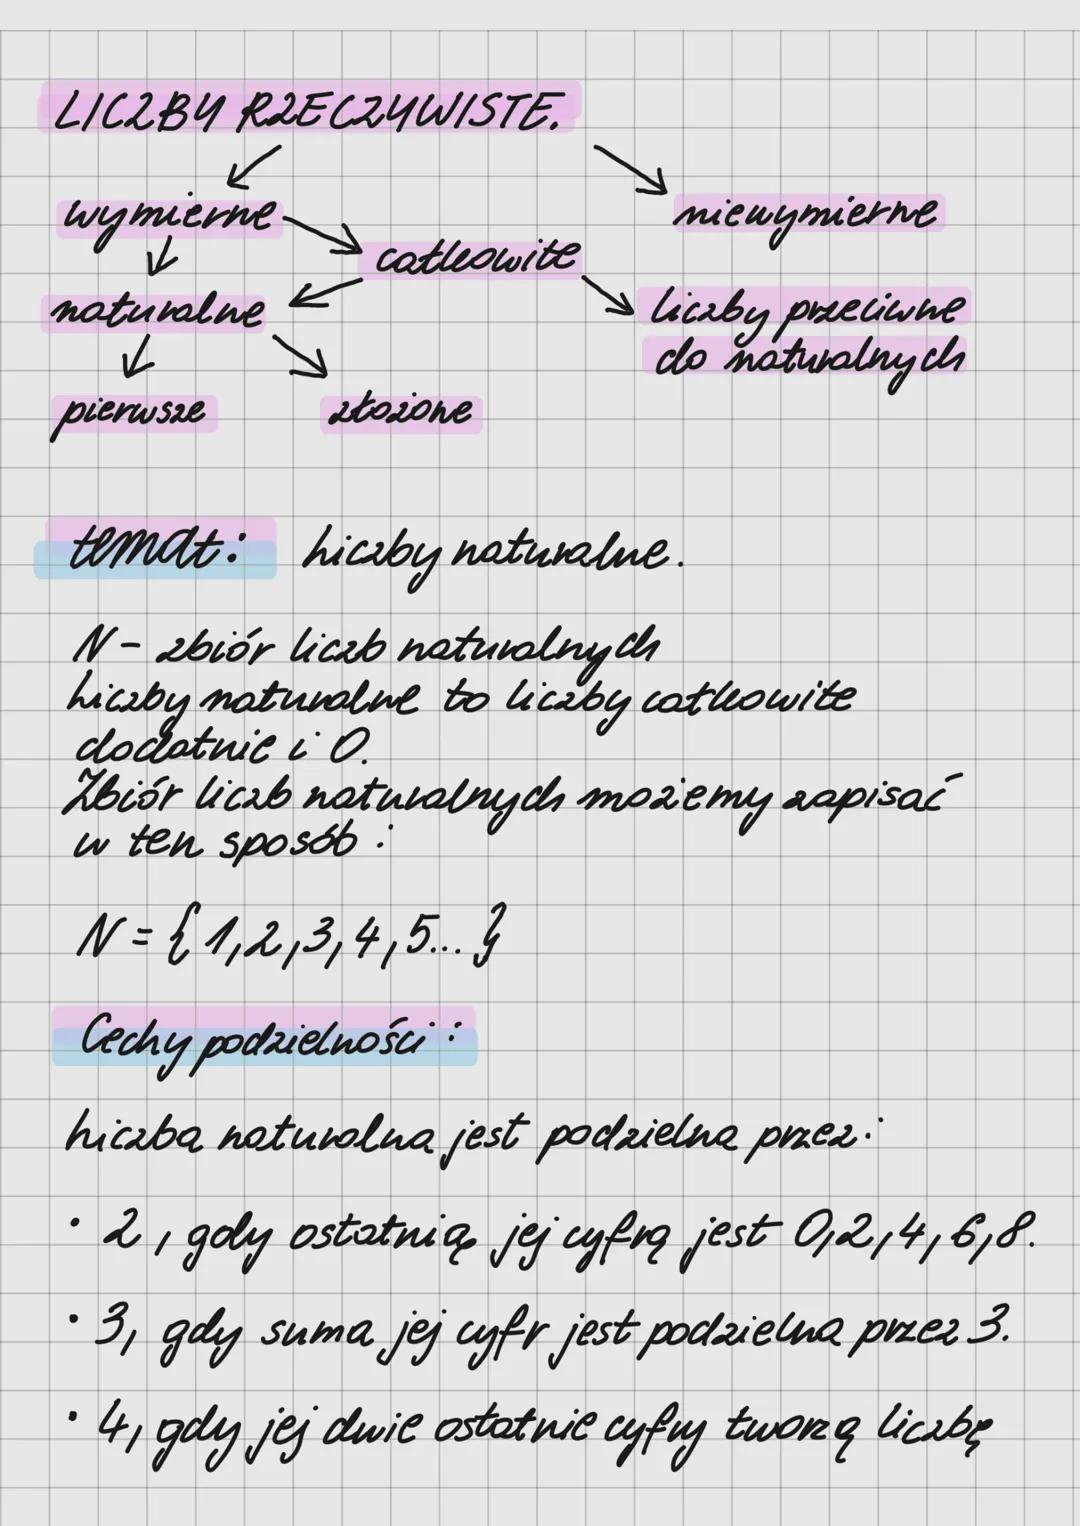 LICZBY RZECZYWISTE.
wymierne
niewymierne
całkowite
naturalne
liczby przeciwne
do naturalnych
pierwsze
złożone
temat: Liczby naturalne.
N - zbiór liczb naturalnych
Liczby naturalne to liczby całkowite
dodatnie i 0.
Zbiór liczb naturalnych możemy zapisać
w ten sposób:
N = {1,2,3,4,5...}
Cechy podzielności:
Liczba naturalna jest podzielna przez:
• 2, gdy ostatnią jej cyfrą jest 0,2,4,6,8.
• 3, gdy suma jej cyfr jest podzielna przez 3.
• 4, gdy jej dwie ostatnie cyfry tworzą liczbę